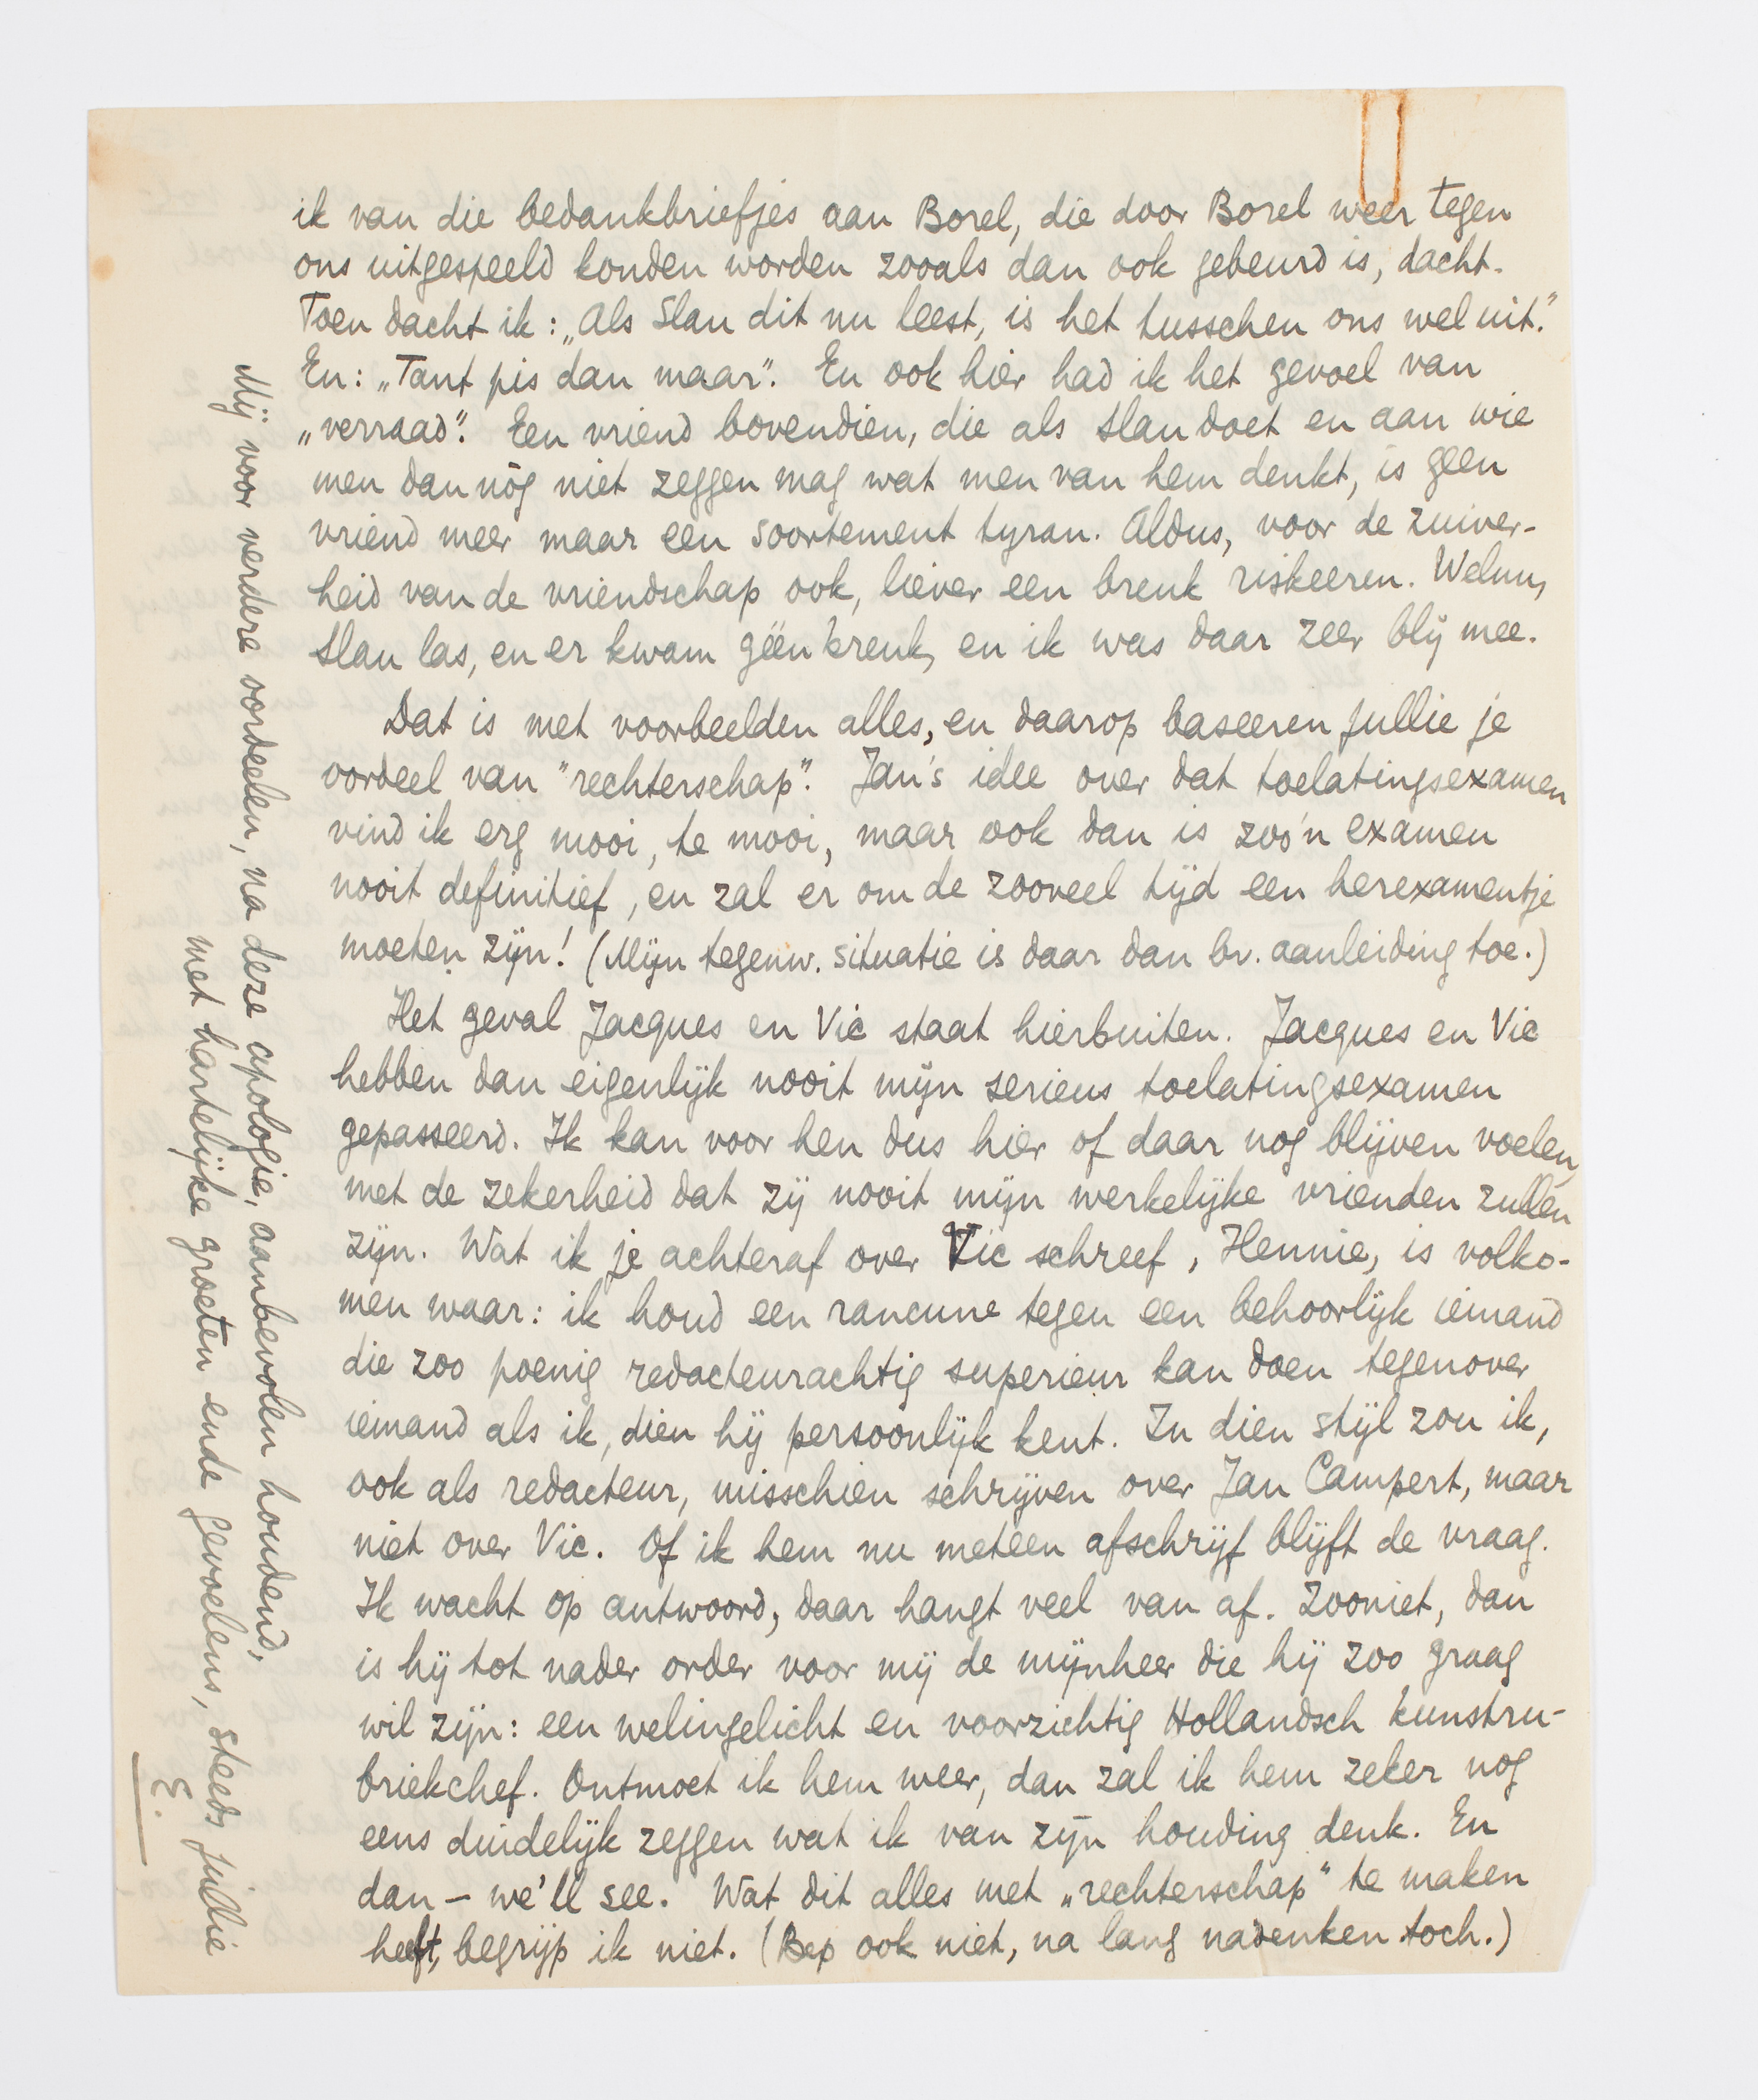 ik van die bedankbriefjes aan Borel, die door Borel weer tegen
ons uitgespeeld konden worden zooals dan ook gebeurd is, dacht.
Toen dacht ik: „Als Slau dit nu leest, is het tusschen ons wel uit."
En: „Tant pis dan maar". En ook hier had ik het gevoel van
„verraad". Een vriend bovendien, die als Slau doet en aan wie
men dan nòg niet zeggen mag wat men van hem denkt, is geen
vriend meer maar een soortement tyran. Aldus, voor de zuiver-
heid van de vriendschap ook, liever een breuk riskeeren. Welnu,
Slau las, en er kwam géén breuk, en ik was daar zeer blij mee.
Dat is met voorbeelden alles, en daarop baseeren jullie je
oordeel van "rechterschap". Jan's idee over dat toelatingsexamen
vind ik erg mooi, te mooi, maar ook dan is zoo'n examen
nooit definitief, en zal er om de zooveel tijd een herexamentje
moeten zijn! (Mijn tegenw. situatie is daar dan bv. aanleiding toe.)
Het geval Jacques en Vic staat hierbuiten. Jacques en Vic
hebben dan eigenlijk nooit mijn serieus toelatingsexamen
gepasseerd. Ik kan voor hen dus hier of daar nog blijven voelen,
met de zekerheid dat zij nooit mijn werkelijke vrienden zullen
zijn. Wat ik je achteraf over Vic schreef, Hennie, is volko-
men waar: ik houd een rancune tegen een behoorlijk iemand
die zoo poenig redacteurachtig superieur kan doen tegenover
iemand als ik, dien hij persoonlijk kent. In dien stijl zou ik,
ook als redacteur, misschien schrijven over Jan Campert, maar
niet over Vic. Of ik hem nu meteen afschrijf blijft de vraag.
Ik wacht op antwoord, daar hangt veel van af. Zooniet, dan
is hij tot nader order voor mij de mijnheer die hij zoo graag
wil zijn: een welingelicht en voorzichtig Hollandsch kunstru-
briekchef. Ontmoet ik hem weer, dan zal ik hem zeker nog
eens duidelijk zeggen wat ik van zijn houding denk. En
dan – we'll see. Wat dit alles met „rechterschap" te maken
heeft, begrijp ik niet. (Bep ook niet, na lang nadenken toch.)
Mij voor verdere oordeelen, na deze apologie, aanbevolen houdend,
met hartelijke groeten ende gevoelens, steeds jullie
E.